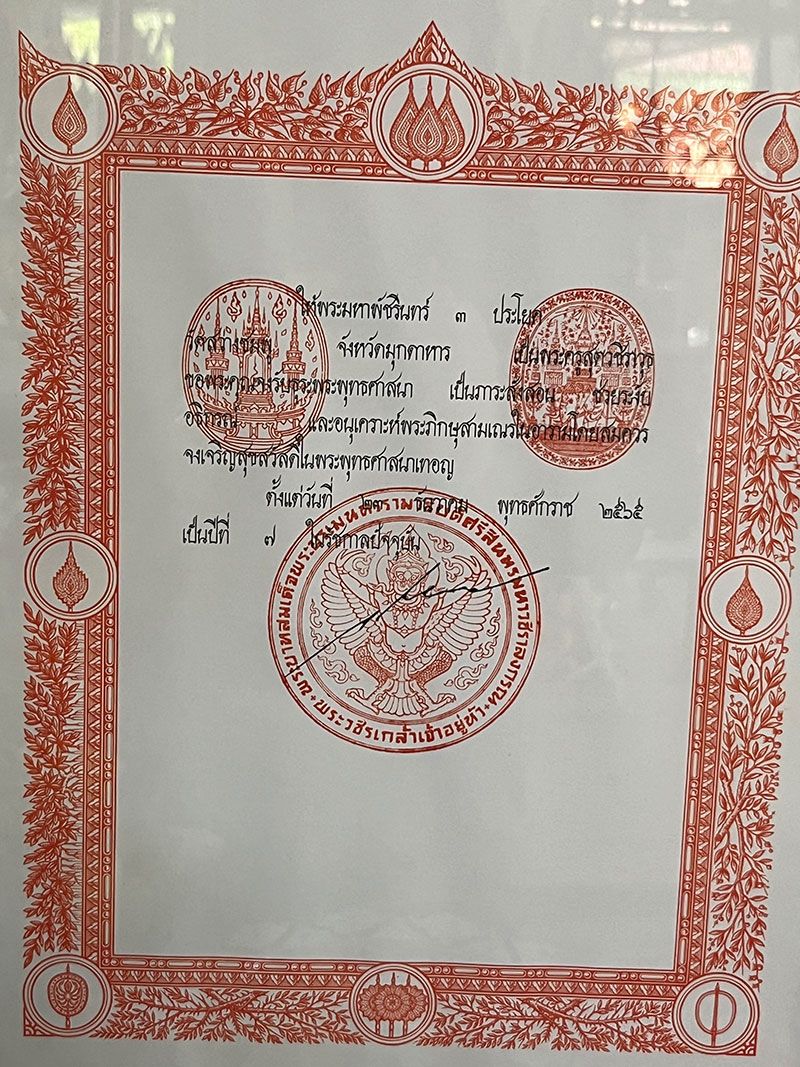 ให้พระมหาพัชรินทร์ ๓ ประโยค
วัดสว่างชมภู จังหวัดมุกดาหาร เป็นพระครูสุตวชิราวุธ
ขอพระคุณจงรับธุระพระพุทธศาสนา เป็นภาระสั่งสอน ช่วยระงับ
อธิกรณ์ และอนุเคราะห์พระภิกษุสามเณรในอารามโดยสมควร
จงเจริญสุขสวัสดิ์ในพระพุทธศาสนาเทอญ
ตั้งแต่วันที่ ธันวาคม พุทธศักราช ๒๕๖๕
เป็นปีที่ ๗ ในรัชกาลปัจจุบัน
พระบาทสมเด็จพระปรเมนทรรามาธิบดีศรีสินทรมหาวชิราลงกรณ
พระวชิรเกล้าเจ้าอยู่หัว